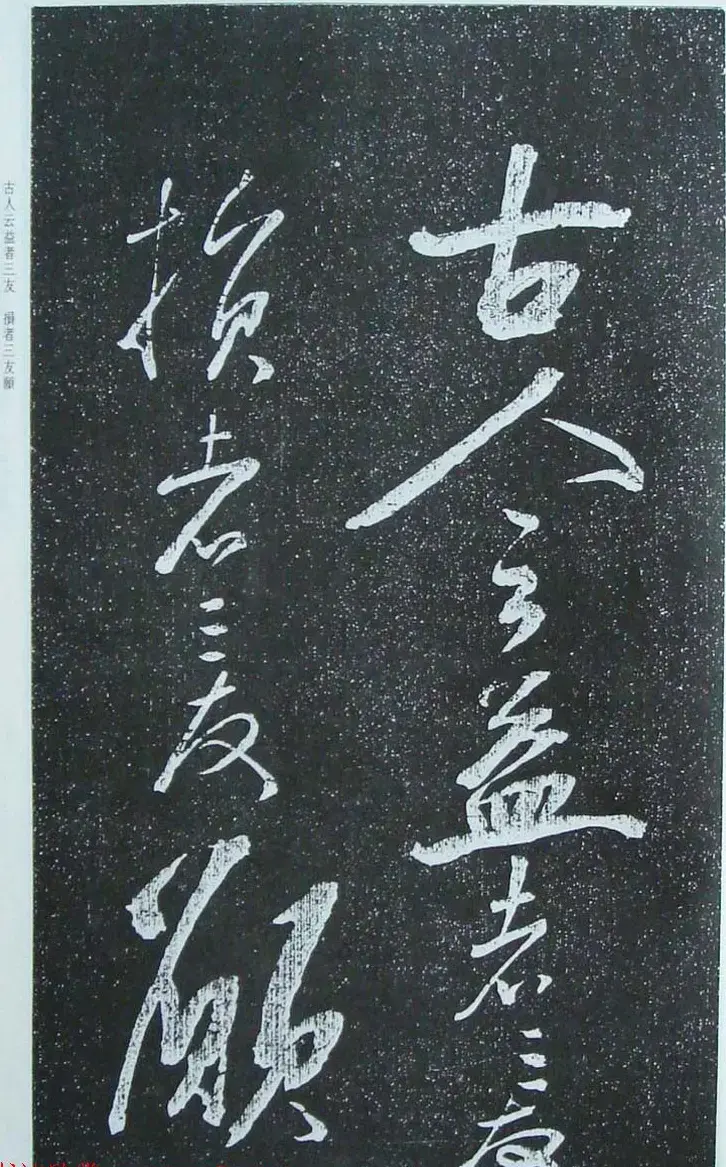 古人云益者三友
損者三友願
古人云益者三友 損者三友願